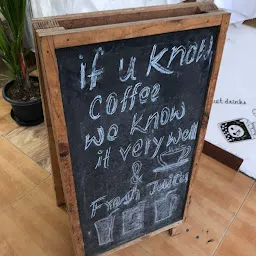 if u know
coffee
we know
it very well
&
Fresh Juices